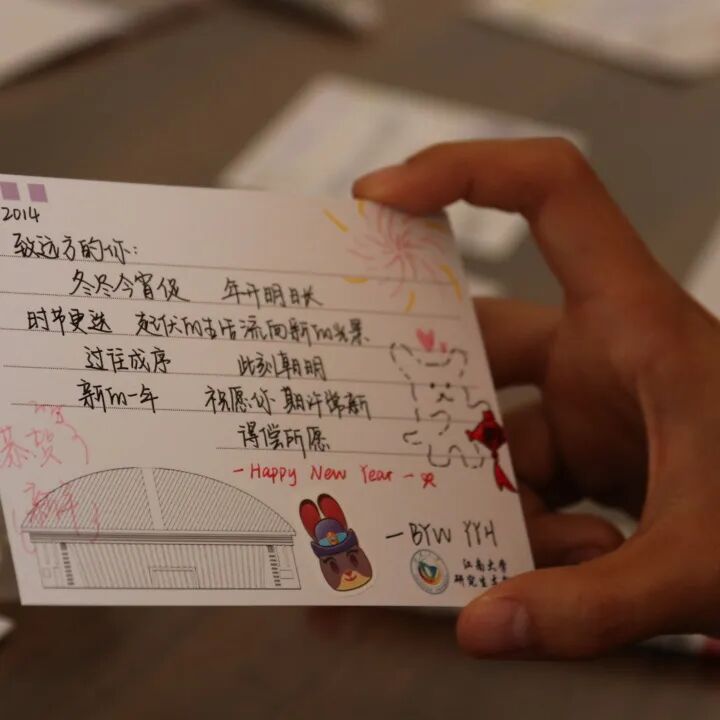 2014
致远方的你:
冬尽今宵促 年开明日长
时节更迭 起伏的生活流向新的光景
过往成序 此刻朝明
新的一年 祝愿你 期许常新
得偿所愿
- Happy New Year -
恭贺
新年
- BYW YYH
江南大学
研究生支